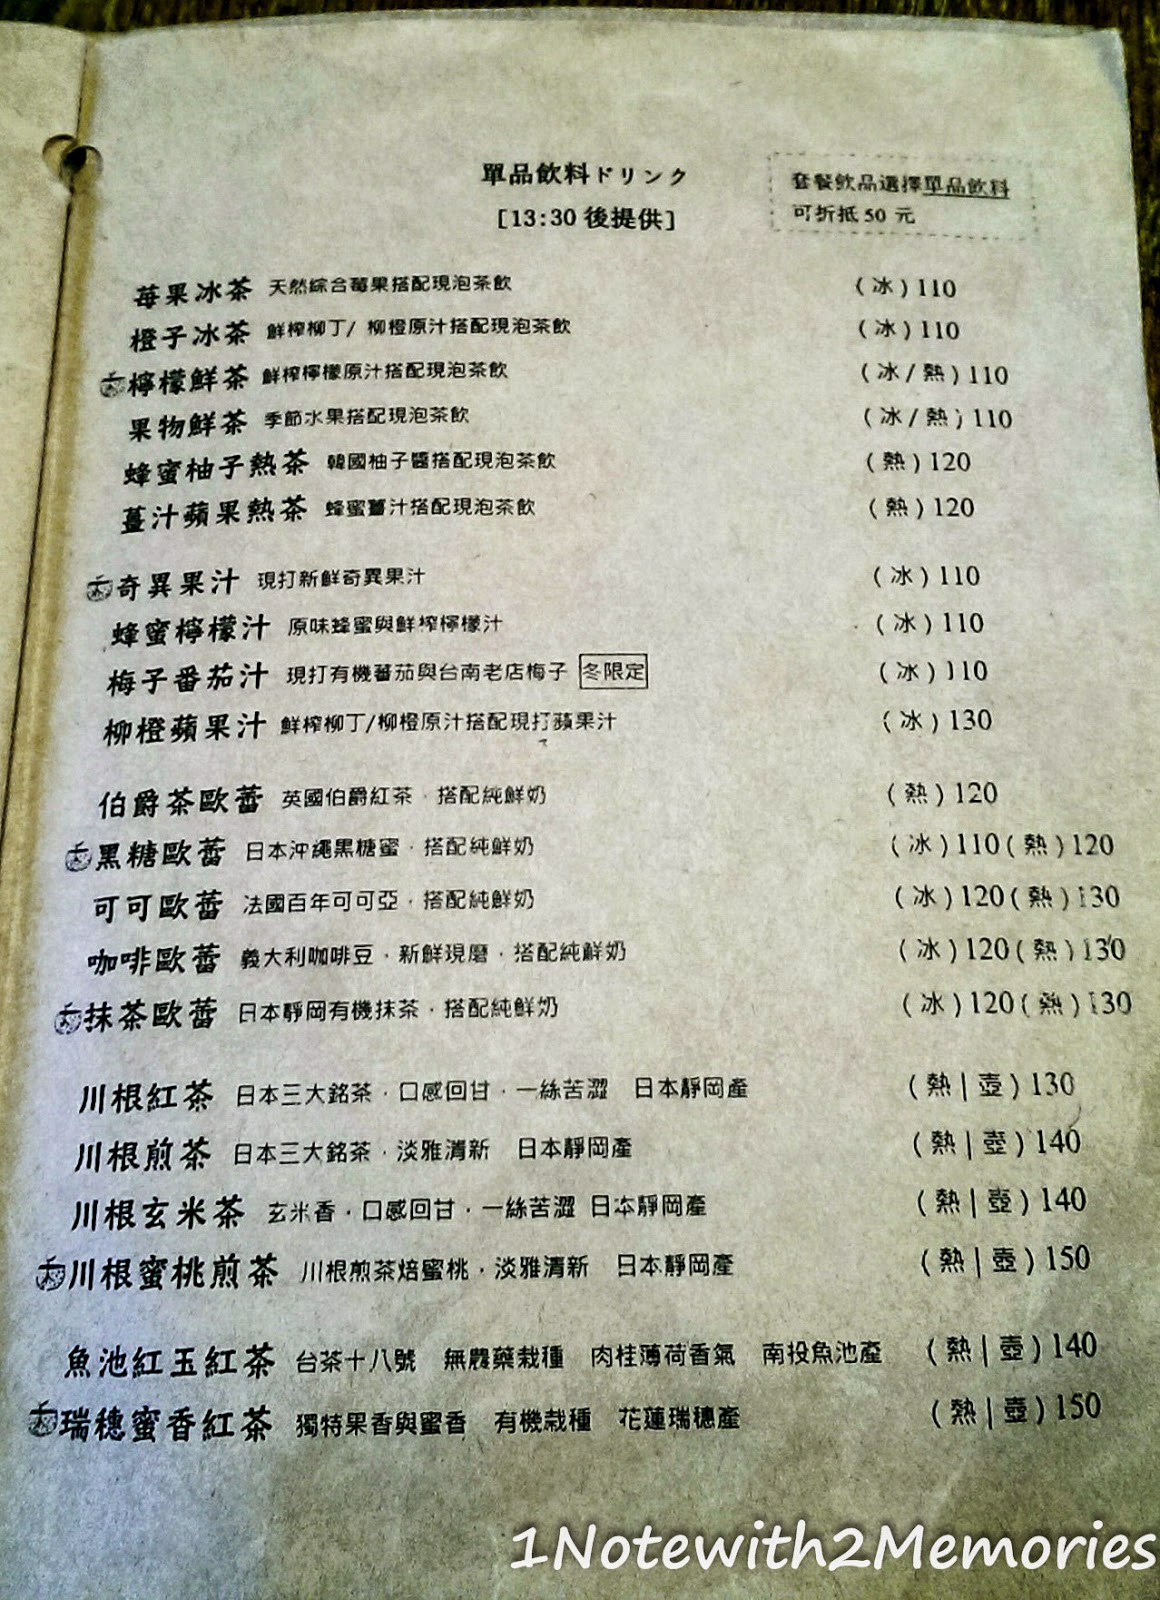 單品飲料ドリンク
[13:30 後提供]
套餐飲品選擇單品飲料
可折抵 50 元
莓果冰茶 天然綜合莓果搭配現泡茶飲 (冰) 110
橙子冰茶 鮮榨柳丁/ 柳橙原汁搭配現泡茶飲 (冰) 110
檸檬鮮茶 鮮榨檸檬原汁搭配現泡茶飲 (冰/熱) 110
果物鮮茶 季節水果搭配現泡茶飲 (冰/熱) 110
蜂蜜柚子熱茶 韓國柚子醬搭配現泡茶飲 (熱) 120
薑汁蘋果熱茶 蜂蜜薑汁搭配現泡茶飲 (熱) 120
奇異果汁 現打新鮮奇異果汁 (冰) 110
蜂蜜檸檬汁 原味蜂蜜與鮮榨檸檬汁 (冰) 110
梅子番茄汁 現打有機蕃茄與台南老店梅子 冬限定 (冰) 110
柳橙蘋果汁 鮮榨柳丁/柳橙原汁搭配現打蘋果汁 (冰) 130
伯爵茶歐蕾 英國伯爵紅茶．搭配純鮮奶 (熱) 120
黑糖歐蕾 日本沖繩黑糖蜜．搭配純鮮奶 (冰) 110 (熱) 120
可可歐蕾 法國百年可可亞．搭配純鮮奶 (冰) 120 (熱) 130
咖啡歐蕾 義大利咖啡豆．新鮮現磨．搭配純鮮奶 (冰) 120 (熱) 130
抹茶歐蕾 日本靜岡有機抹茶．搭配純鮮奶 (冰) 120 (熱) 130
川根紅茶 日本三大銘茶．口感回甘．一絲苦澀 日本靜岡產 (熱|壺) 130
川根煎茶 日本三大銘茶．淡雅清新 日本靜岡產 (熱|壺) 140
川根玄米茶 玄米香．口感回甘．一絲苦澀 日本靜岡產 (熱|壺) 140
川根蜜桃煎茶 川根煎茶焙蜜桃．淡雅清新 日本靜岡產 (熱|壺) 150
魚池紅玉紅茶 台茶十八號 無農藥栽種 肉桂薄荷香氣 南投魚池產 (熱|壺) 140
瑞穗蜜香紅茶 獨特果香與蜜香 有機栽種 花蓮瑞穗產 (熱|壺) 150
1Notewith2Memories